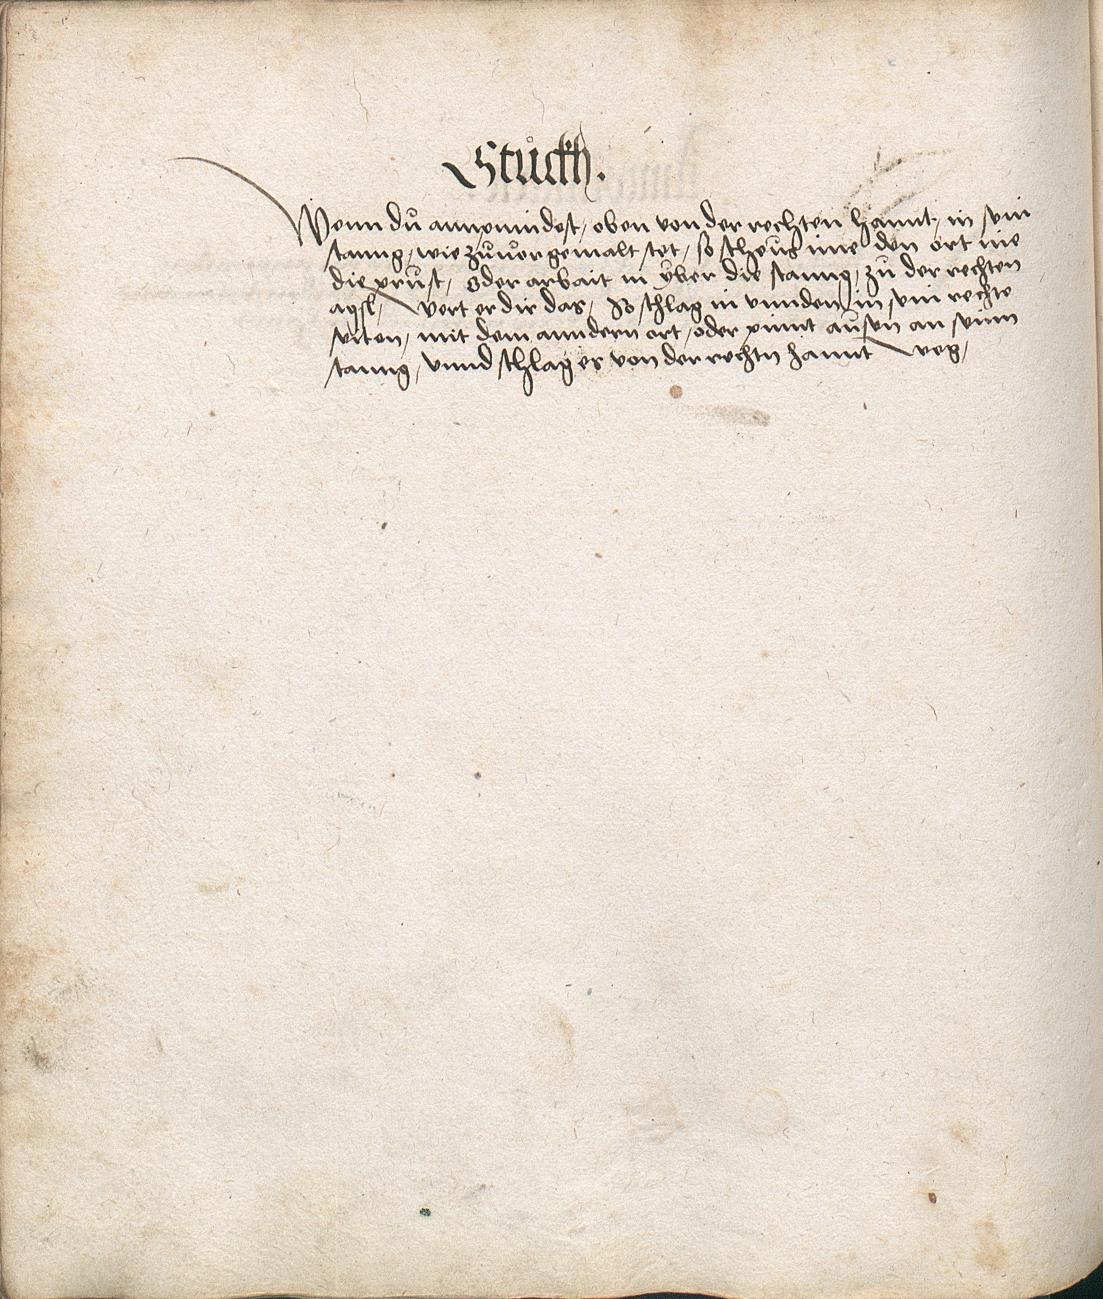 Stuckh.
Wenn dů annpindest, oben von der rechten hannt, in sein
stanng, wie zuůor gemalt stet, so scheus ime den ort in
die prust, oder arbait in yber die stanng, zu der rechten
agsl, Wert er dir das, So schlag in vnnden, in sein rechte
seiten, mit dem anndern ort, oder pinnt aůsen an seinn
stanng, vnnd schlag es von der rechtn hannt weg,